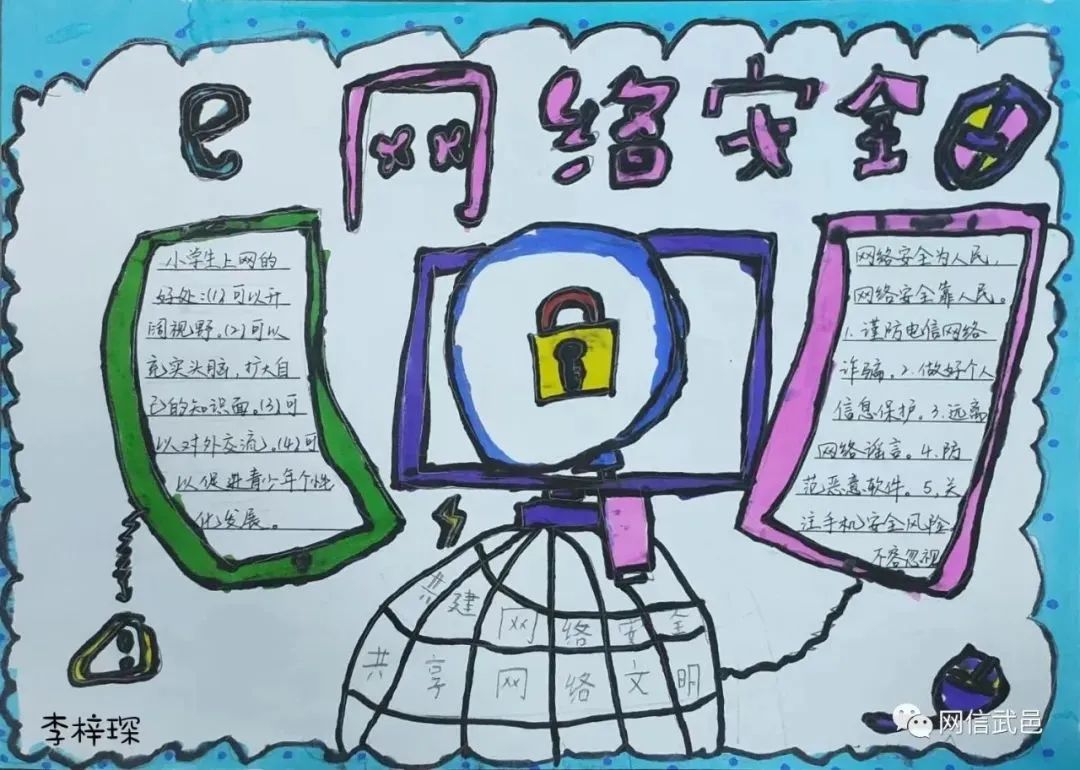 e 网络安全
小学生上网的
好处:(1)可以开
阔视野。(2)可以
充实头脑，扩大自
己的知识面。(3)可
以对外交流。(4)可
以促进青少年个性
化发展。
网络安全为人民，
网络安全靠人民。
1.谨防电信网络
诈骗。2.做好个人
信息保护。3.远离
网络谣言。4.防
范恶意软件。5.关
注手机安全风险
不容忽视
共建网络安全
共享网络文明
李梓琛
网信武邑